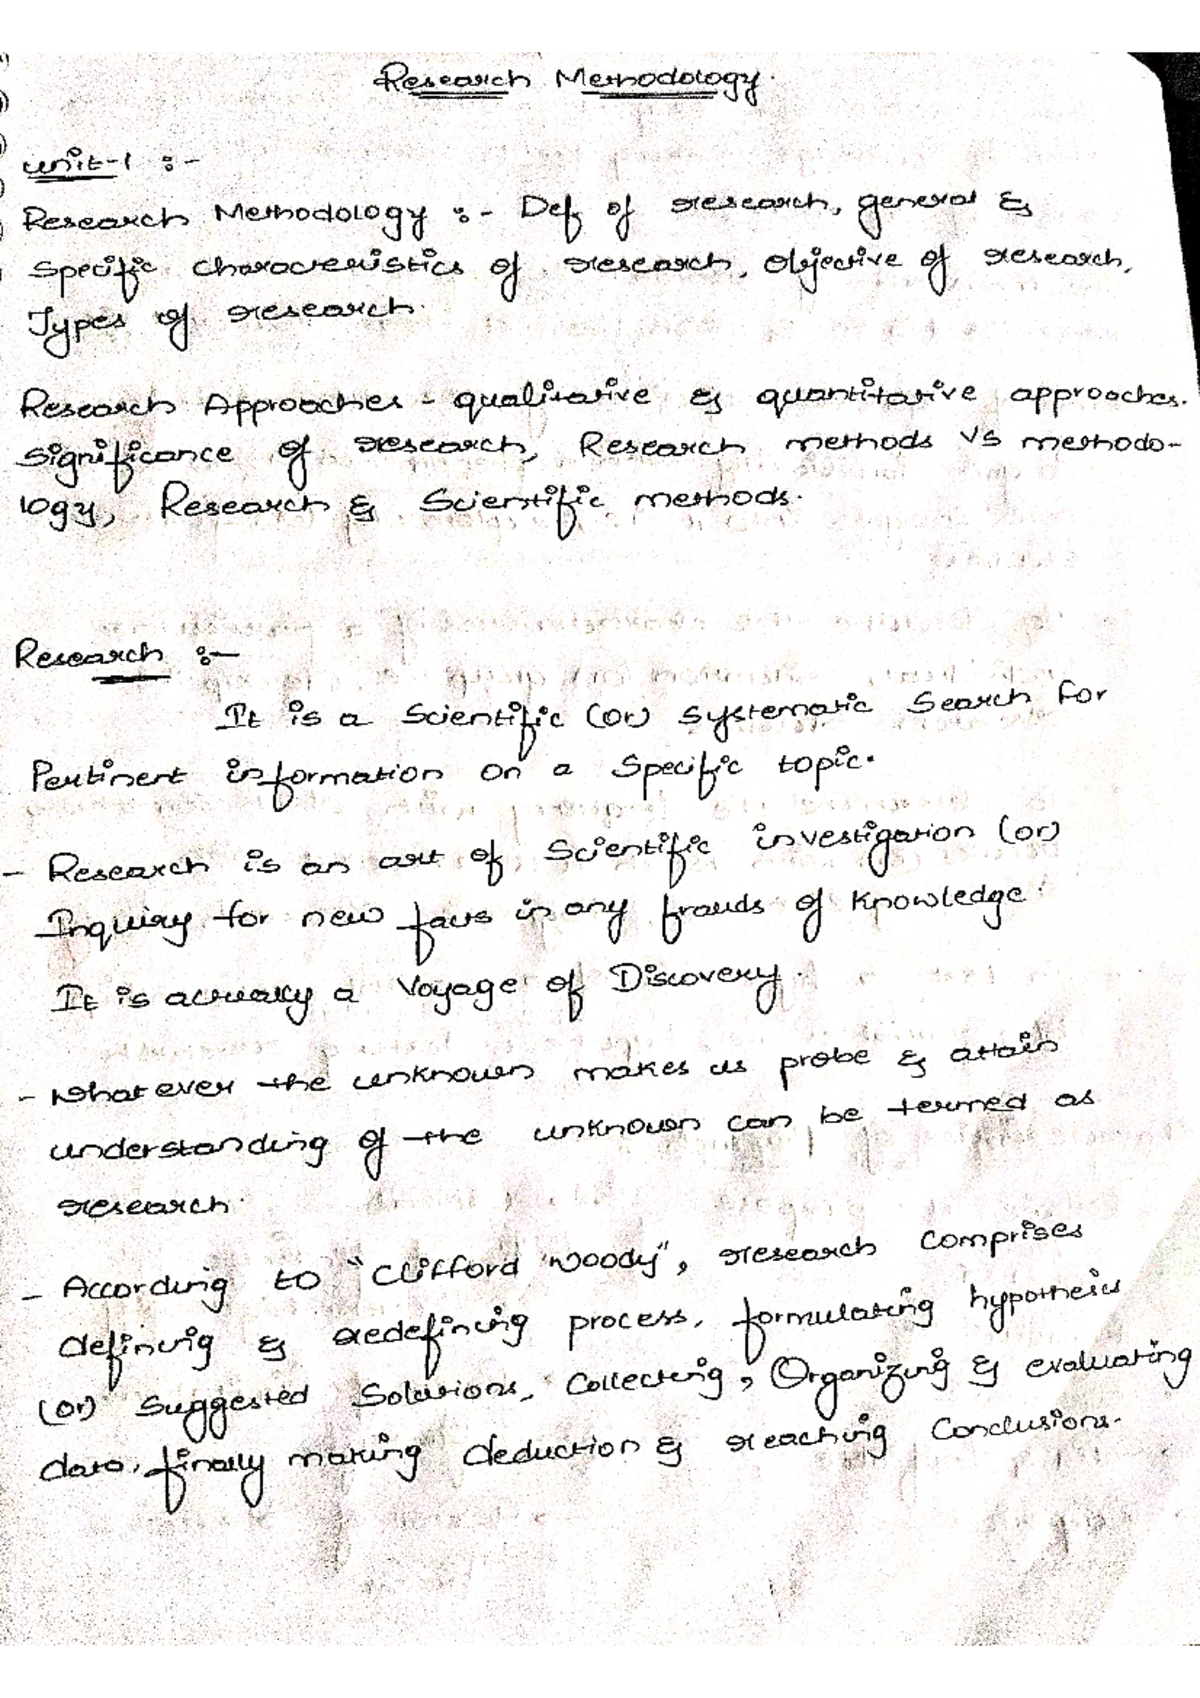 Research Methodology.
Unit-1 :-
Research Methodology :- Def of research, general &
Specific characteristics of research, Objective of research,
Types of research.
Research Approaches - qualitative & quantitative approaches.
Significance of research, Research methods Vs methodo-
logy, Research & Scientific methods.
Research :-
It is a Scientific (or) systematic Search for
Pertinent information on a Specific topic.
- Research is an art of Scientific investigation (or)
Inquiry for new facts in any frauds of Knowledge.
It is actually a Voyage of Discovery.
- Whatever the unknown makes us probe & attain
understanding of the unknown can be termed as
research.
- According to "Clifford Woody", research comprises
defining & redefining process, formulating hypothesis
(or) Suggested Solutions, Collecting, Organizing & evaluating
data, finally making deduction & reaching Conclusions.